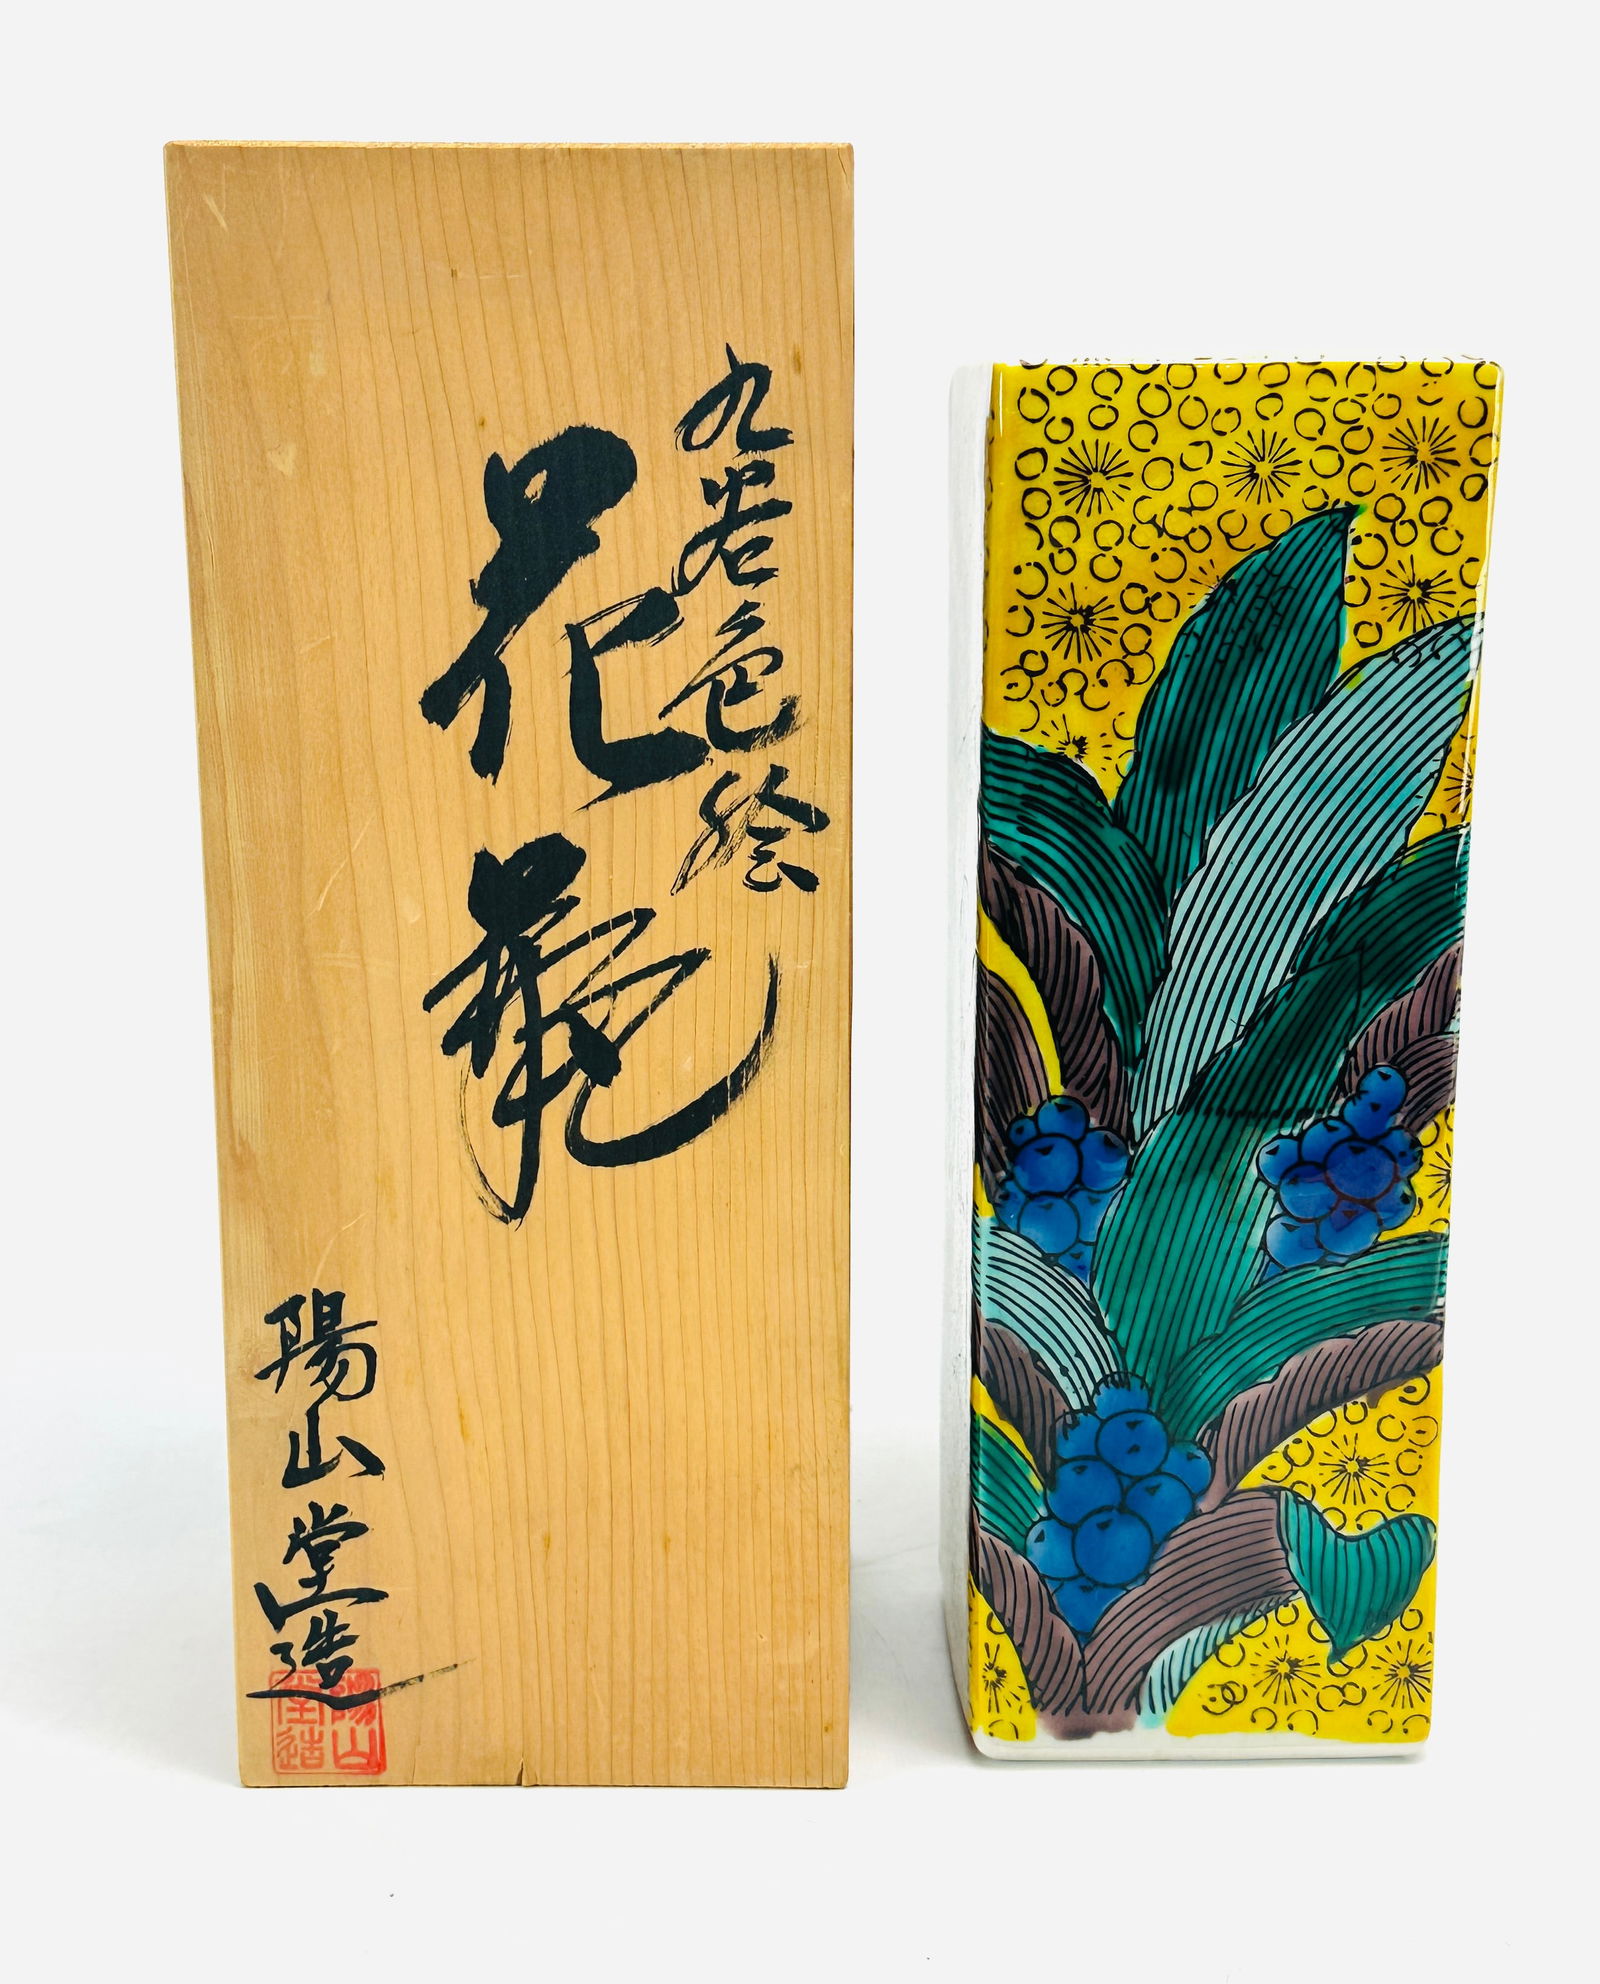 九谷色絵
花瓶
陽山堂造
陽山
堂造